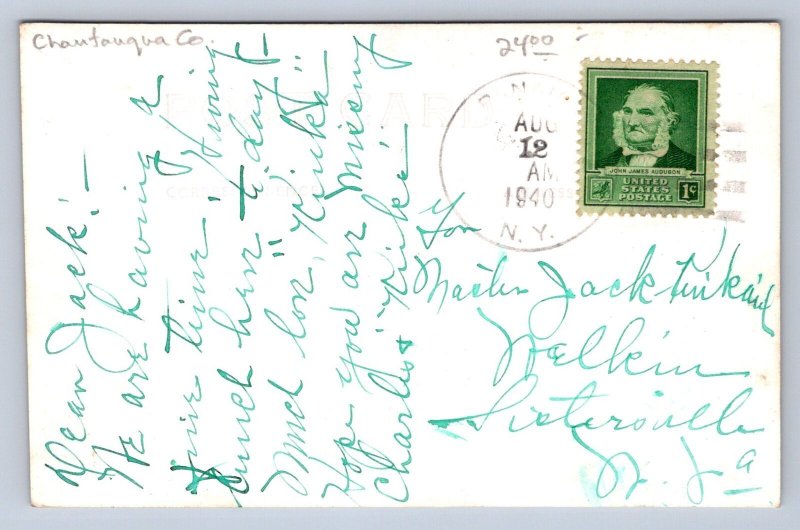 Chautauqua Co.
24 00
POST CARD
AUG
12
AM
1940
N. Y.
JOHN JAMES AUDUBON
UNITED
STATES
POSTAGE 1¢
Dear Jack! —
We are having a
fine time! Having
lunch here to day!
Much love, "Kirka"
Hope you are missing
Charles & "Kirke"!
You
Master Jack
Welkin
Sistersville
W. Va